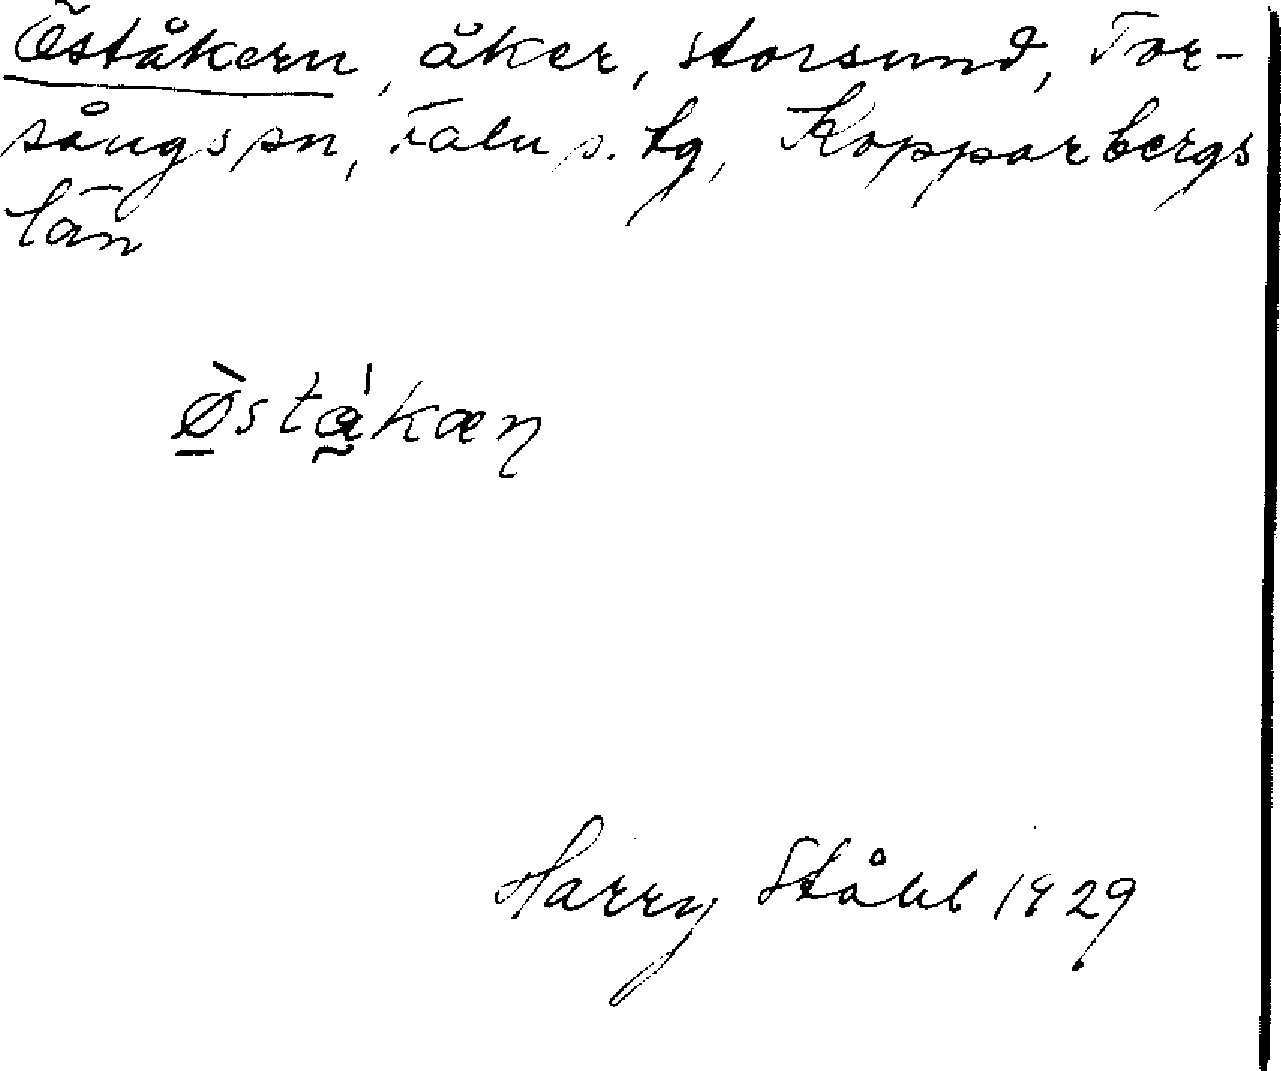 Öståkern, åker, Storsund, Tor-
sångs sn, Falu s. tg, Kopparbergs
län
Øståkæn
Harry Ståhl 1929